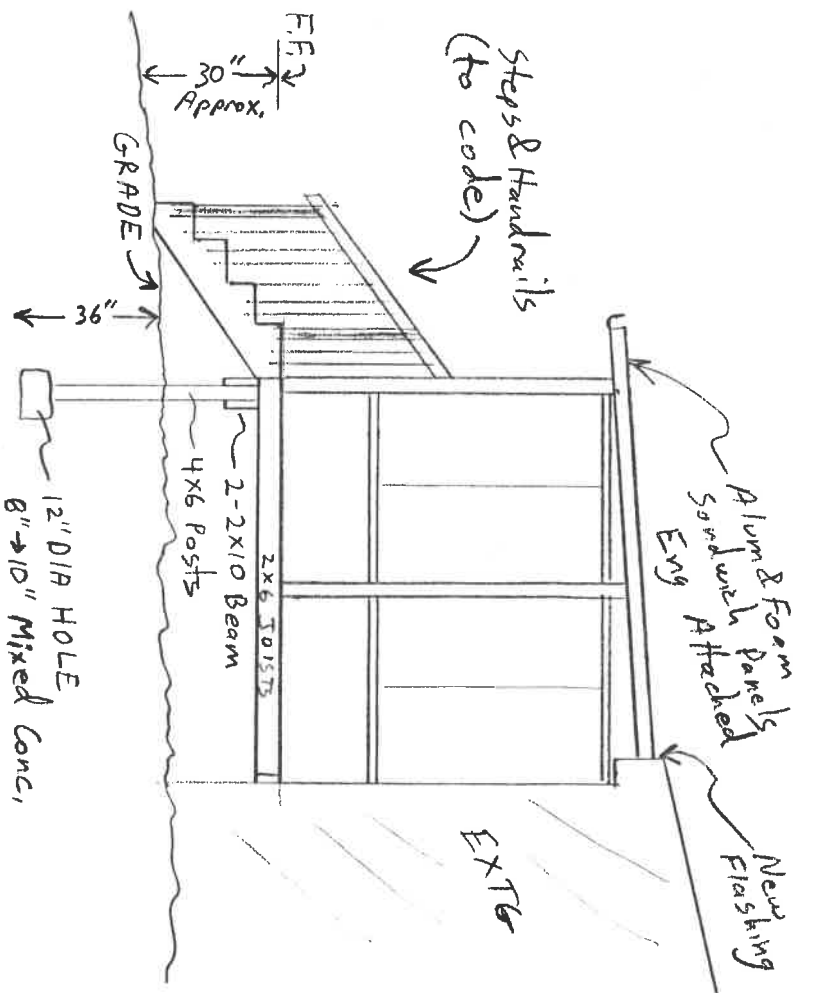 Alum & Foam
Sandwich Panels
Eng Attached
New
Flashing
Steps & Handrails
(to code)
EXTG
F.F.
30"
Approx.
GRADE
36"
2x6 JOISTS
2-2x10 Beam
4x6 Posts
12" DIA HOLE
8"→10" Mixed Conc.